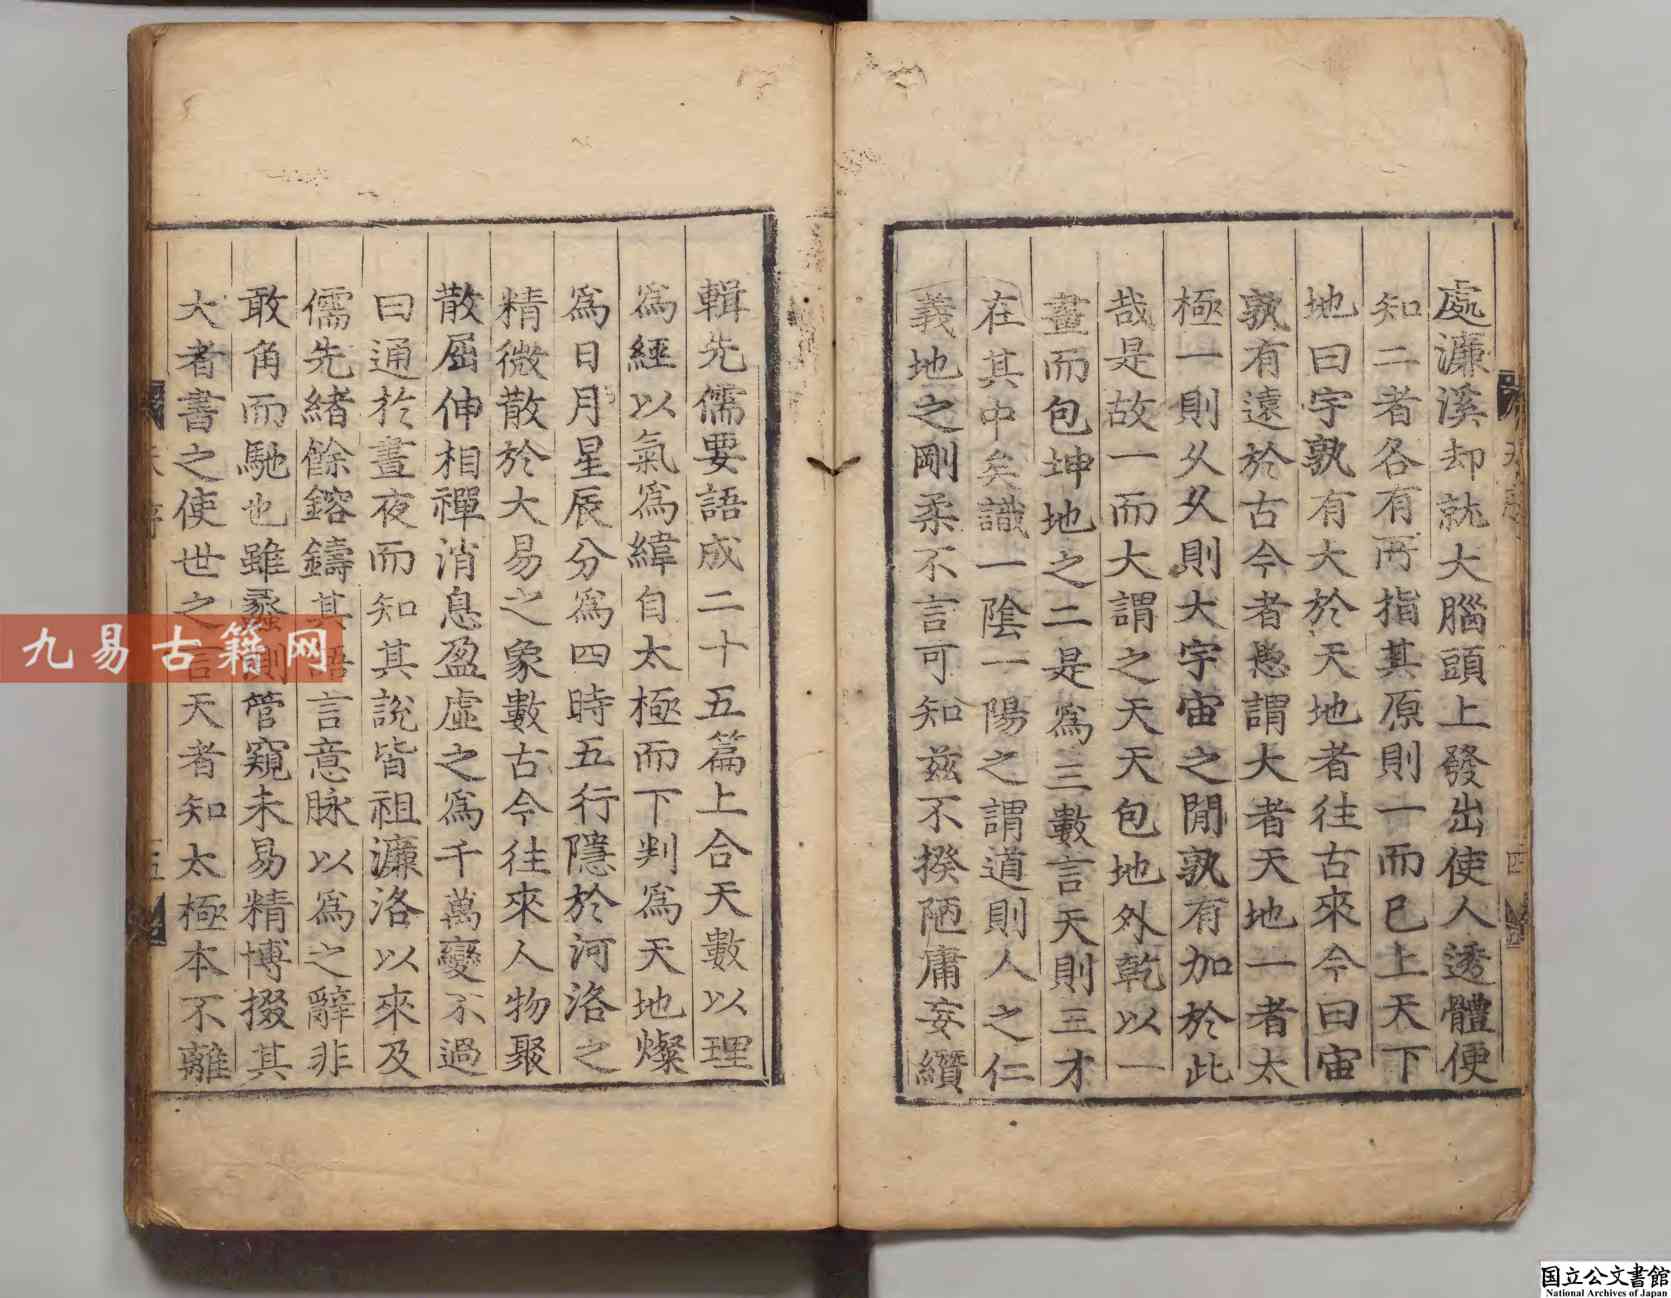 處濂溪却就大腦頭上發出使人透體便
知二者各有所指其原則一而已上天下
地曰宇孰有大於天地者往古來今曰宙
孰有遠於古今者愚謂大者天地一者太
極一則久久則大宇宙之閒孰有加於此
哉是故一而大謂之天天包地外乾以一
畫而包坤地之二是爲三數言天則三才
在其中矣識一陰一陽之謂道則人之仁
義地之剛柔不言可知兹不揆陋庸妄纘
四
輯先儒要語成二十五篇上合天數以理
爲經以氣爲緯自太極而下判爲天地燦
爲日月星辰分爲四時五行隱於河洛之
精微散於大易之象數古今往來人物聚
散屈伸相禪消息盈虛之爲千萬變不過
曰通於晝夜而知其說皆祖濂洛以來及
儒先緒餘鎔鑄其語言意脉以爲之辭非
敢角而馳也雖蠡測管窺未易精博掇其
大者書之使世之言天者知太極本不離
五
九易古籍网
国立公文書館
National Archives of Japan